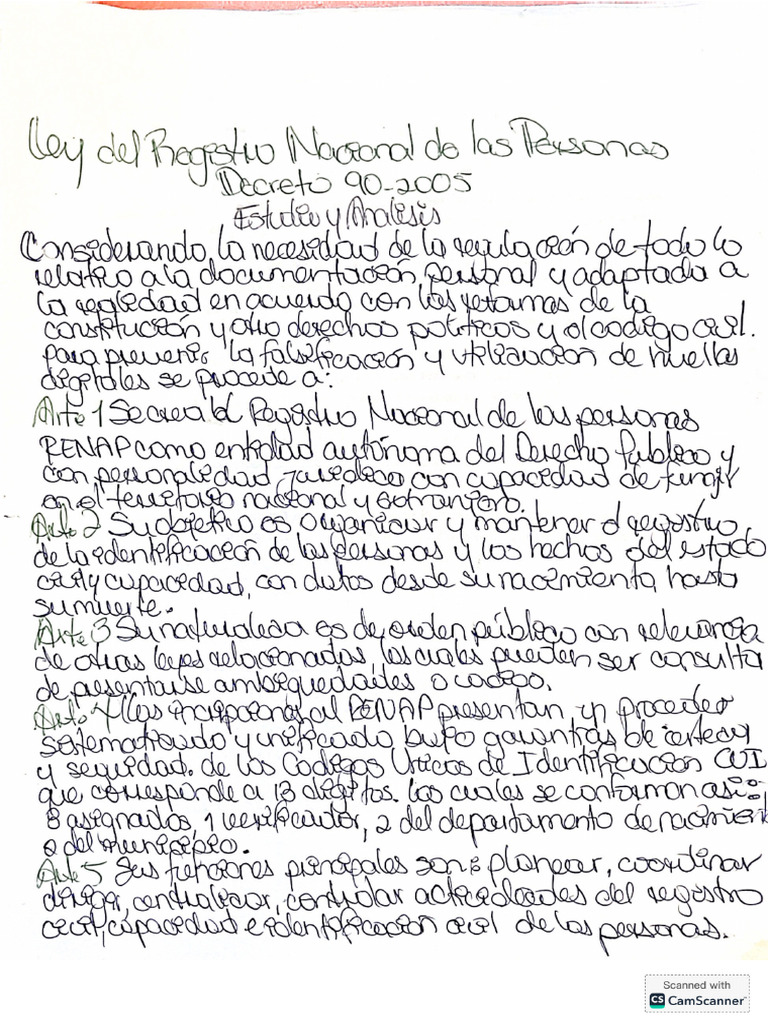 Ley del Registro Nacional de las Personas
Decreto 90-2005
Estudio y Análisis
Considerando, la necesidad de la regulación de todo lo
relativo a la documentación personal y adaptada a
la realidad en acuerdo con las reformas de la
constitución y otro derechos políticos y el código civil.
para prevenir la falsificación y utilización de huellas
digitales se procede a:
Arto 1 Se crea el Registro Nacional de las personas
RENAP como entidad autónoma del Derecho Público y
con personalidad jurídica con capacidad de fungir
en el territorio nacional y extranjero.
Arto 2 Su objetivo es organizar y mantener el registro
de la identificación de las personas y los hechos del estado
civil y capacidad, con datos desde su nacimiento hasta
su muerte.
Arto 3 Su naturaleza es de orden público con relevancia
de otras leyes relacionadas, las cuales pueden ser consulta
de presentarse ambigüedades o
Arto 4 las inscripciones al RENAP presentan un proceder
sistematizado y unificado bajo garantías de certeza
y seguidad. de los Códigos Unicos de Identificación CUI
que corresponde a 13 dígitos. los cuales se conforman así:
8 asignados, 1 verificador, 2 del departamento de nacimient
2 del municipio.
Arto 5 Sus funciones principales son: planear, coordinar
dirigir, centralizar, controlar actividades del registro
civil, capacidad e identificación civil de las personas.
Scanned with
CS CamScanner